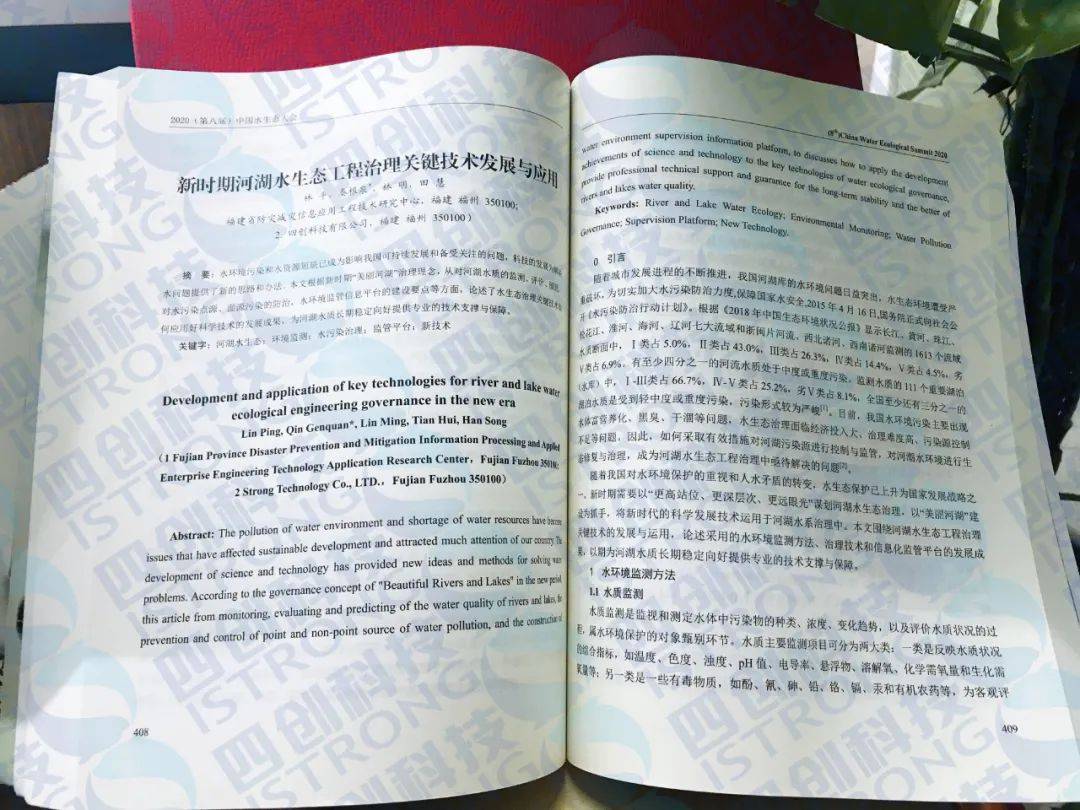 2020（第八届）中国水生态大会
新时期河湖水生态工程治理关键技术发展与应用
林 平，秦根泉*，林 明，田 慧
福建省防灾减灾信息应用工程技术研究中心，福建 福州 350100；
2 四创科技有限公司，福建 福州 350100）
摘 要：水环境污染和水资源短缺已成为影响我国可持续发展和备受关注的问题，科技的发展为解决
水问题提供了新的思路和办法。本文根据新时期“美丽河湖”治理理念，从对河湖水质的监测、评价、预测，
对水污染点源、面源污染的防治，水环境监管信息平台的建设要点等方面，论述了水生态治理关键技术
何应用好科学技术的发展成果，为河湖水质长期稳定向好提供专业的技术支撑与保障。
关键字：河湖水生态；环境监测；水污染治理；监管平台；新技术
Development and application of key technologies for river and lake water
ecological engineering governance in the new era
Lin Ping, Qin Genquan*, Lin Ming, Tian Hui, Han Song
(1 Fujian Province Disaster Prevention and Mitigation Information Processing and Applied
Enterprise Engineering Technology Application Research Center, Fujian Fuzhou 350100;
2 Strong Technology Co., LTD., Fujian Fuzhou 350100)
Abstract: The pollution of water environment and shortage of water resources have become
issues that have affected sustainable development and attracted much attention of our country. The
development of science and technology has provided new ideas and methods for solving water
problems. According to the governance concept of "Beautiful Rivers and Lakes" in the new period,
this article from monitoring, evaluating and predicting of the water quality of rivers and lakes, the
prevention and control of point and non-point source of water pollution, and the construction of
408
(8th)China Water Ecological Summit 2020
water environment supervision information platform, to discusses how to apply the development
achievements of science and technology to the key technologies of water ecological governance,
provide professional technical support and guarantee for the long-term stability and the better of
rivers and lakes water quality.
Keywords: River and Lake Water Ecology; Environmental Monitoring; Water Pollution
Governance; Supervision Platform; New Technology.
0 引言
随着城市发展进程的不断推进，我国河湖库的水环境问题日益突出，水生态环境遭受严
重破坏，为切实加大水污染防治力度,保障国家水安全,2015 年 4 月 16 日,国务院正式向社会公
开《水污染防治行动计划》。根据《2018 年中国生态环境状况公报》显示长江、黄河、珠江、
松花江、淮河、海河、辽河七大流域和浙闽片河流、西北诸河、西南诸河监测的 1613 个流域
水质断面中，Ⅰ类占 5.0%，Ⅱ类占 43.0%，Ⅲ类占 26.3%，Ⅳ类占 14.4%，Ⅴ类占 4.5%，劣
Ⅴ类占 6.9%。有至少四分之一的河流水质处于中度或重度污染。监测水质的 111 个重要湖泊
（水库）中，Ⅰ-Ⅲ类占 66.7%，Ⅳ-Ⅴ类占 25.2%，劣Ⅴ类占 8.1%，全国至少还有三分之一的
湖泊水质是受到轻中度或重度污染，污染形式较为严峻[1]。目前，我国水环境污染主要出现
水体富营养化、黑臭、干涸等问题，水生态治理面临经济投入大、治理难度高、污染源控制
不足等问题，因此，如何采取有效措施对河湖污染源进行控制与监管，对河湖水环境进行生
态修复与治理，成为河湖水生态工程治理中亟待解决的问题[2]。
随着我国对水环境保护的重视和人水矛盾的转变，水生态保护已上升为国家发展战略之
一，新时期需要以“更高站位、更深层次、更远眼光”谋划河湖水生态治理，以“美丽河湖”建
设为抓手，将新时代的科学发展技术运用于河湖水系治理中。本文围绕河湖水生态工程治理
关键技术的发展与运用，论述采用的水环境监测方法、治理技术和信息化监管平台的发展成
果，以期为河湖水质长期稳定向好提供专业的技术支撑与保障。
1 水环境监测方法
1.1 水质监测
水质监测是监视和测定水体中污染物的种类、浓度、变化趋势，以及评价水质状况的过
程，属水环境保护的对象甄别环节。水质主要监测项目可分为两大类：一类是反映水质状况
的综合指标，如温度、色度、浊度、pH 值、电导率、悬浮物、溶解氧、化学需氧量和生化需
氧量等；另一类是一些有毒物质，如酚、氰、砷、铅、铬、镉、汞和有机农药等，为客观评
409
四创科技
ISTRONG